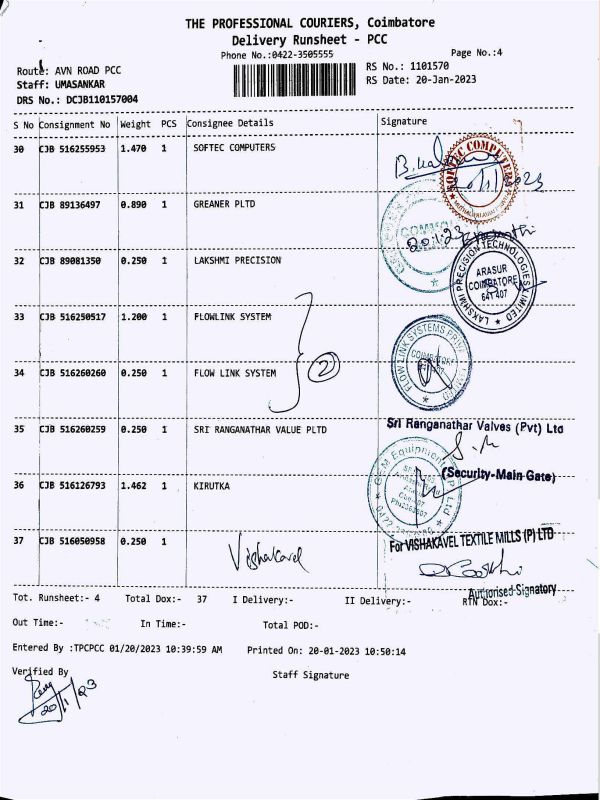 THE PROFESSIONAL COURIERS, Coimbatore
Delivery Runsheet - PCC
Phone No.:0422-3505555
Page No.:4
Route: AVN ROAD PCC
RS No.: 1101570
Staff: UMASANKAR
RS Date: 20-Jan-2023
DRS No.: DCJB110157004
S No Consignment No Weight PCS Consignee Details Signature
30 CJB 516255953 1.470 1 SOFTEC COMPUTERS
SOFTEC COMPUTERS
20/1/2023
31 CJB 89136497 0.890 1 GREANER PLTD
20.1.23
32 CJB 89081350 0.250 1 LAKSHMI PRECISION
LAKSHMI PRECISION TECHNOLOGIES LIMITED
ARASUR
COIMBATORE
641 407
33 CJB 516250517 1.200 1 FLOWLINK SYSTEM
2
FLOW LINK SYSTEMS
COIMBATORE
34 CJB 516260260 0.250 1 FLOW LINK SYSTEM
35 CJB 516260259 0.250 1 SRI RANGANATHAR VALUE PLTD
Sri Ranganathar Valves (Pvt) Ltd
(Security-Main Gate)
36 CJB 516126793 1.462 1 KIRUTKA
GEM Equipments
37 CJB 516050958 0.250 1 Vishakavel
For VISHAKAVEL TEXTILE MILLS (P) LTD
Authorised Signatory
Tot. Runsheet:- 4 Total Dox:- 37 I Delivery:- II Delivery:- RTN Dox:-
Out Time:- In Time:- Total POD:-
Entered By :TPCPCC 01/20/2023 10:39:59 AM Printed On: 20-01-2023 10:50:14
Verified By
Staff Signature
20/1/23